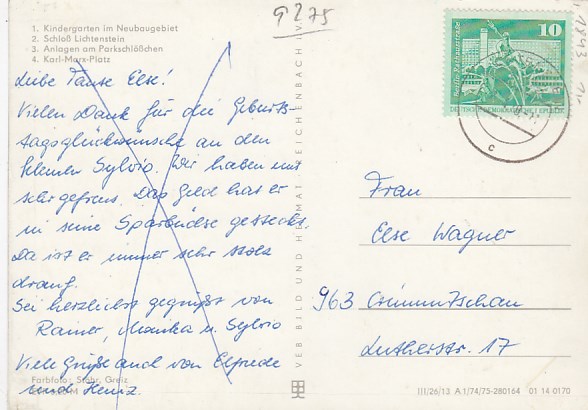 9275
1. Kindergarten im Neubaugebiet
2. Schloß Lichtenstein
3. Anlagen am Parkschlößchen
4. Karl-Marx-Platz
Liebe Tante Else!
Vielen Dank für die Geburts-
tagsglückwünsche an den
kleinen Sylvio. Wir haben uns
sehr gefreut. Das Geld hat er
in seine Sparbüchse gesteckt.
Da ist er immer sehr stolz
drauf.
Sei herzlichst gegrüßt von
Rainer, Monika u. Sylvio
Viele Grüße auch von Elfriede
und Heinz.
Farbfoto: Stöhr, Greiz
VEB BILD UND HEIMAT REICHENBACH
10
Berlin, Rathausstraße
c
Frau
Else Wagner
963 Crimmitschau
Lutherstr. 17
III/26/13 A 1/74/75-280164 01 14 0170